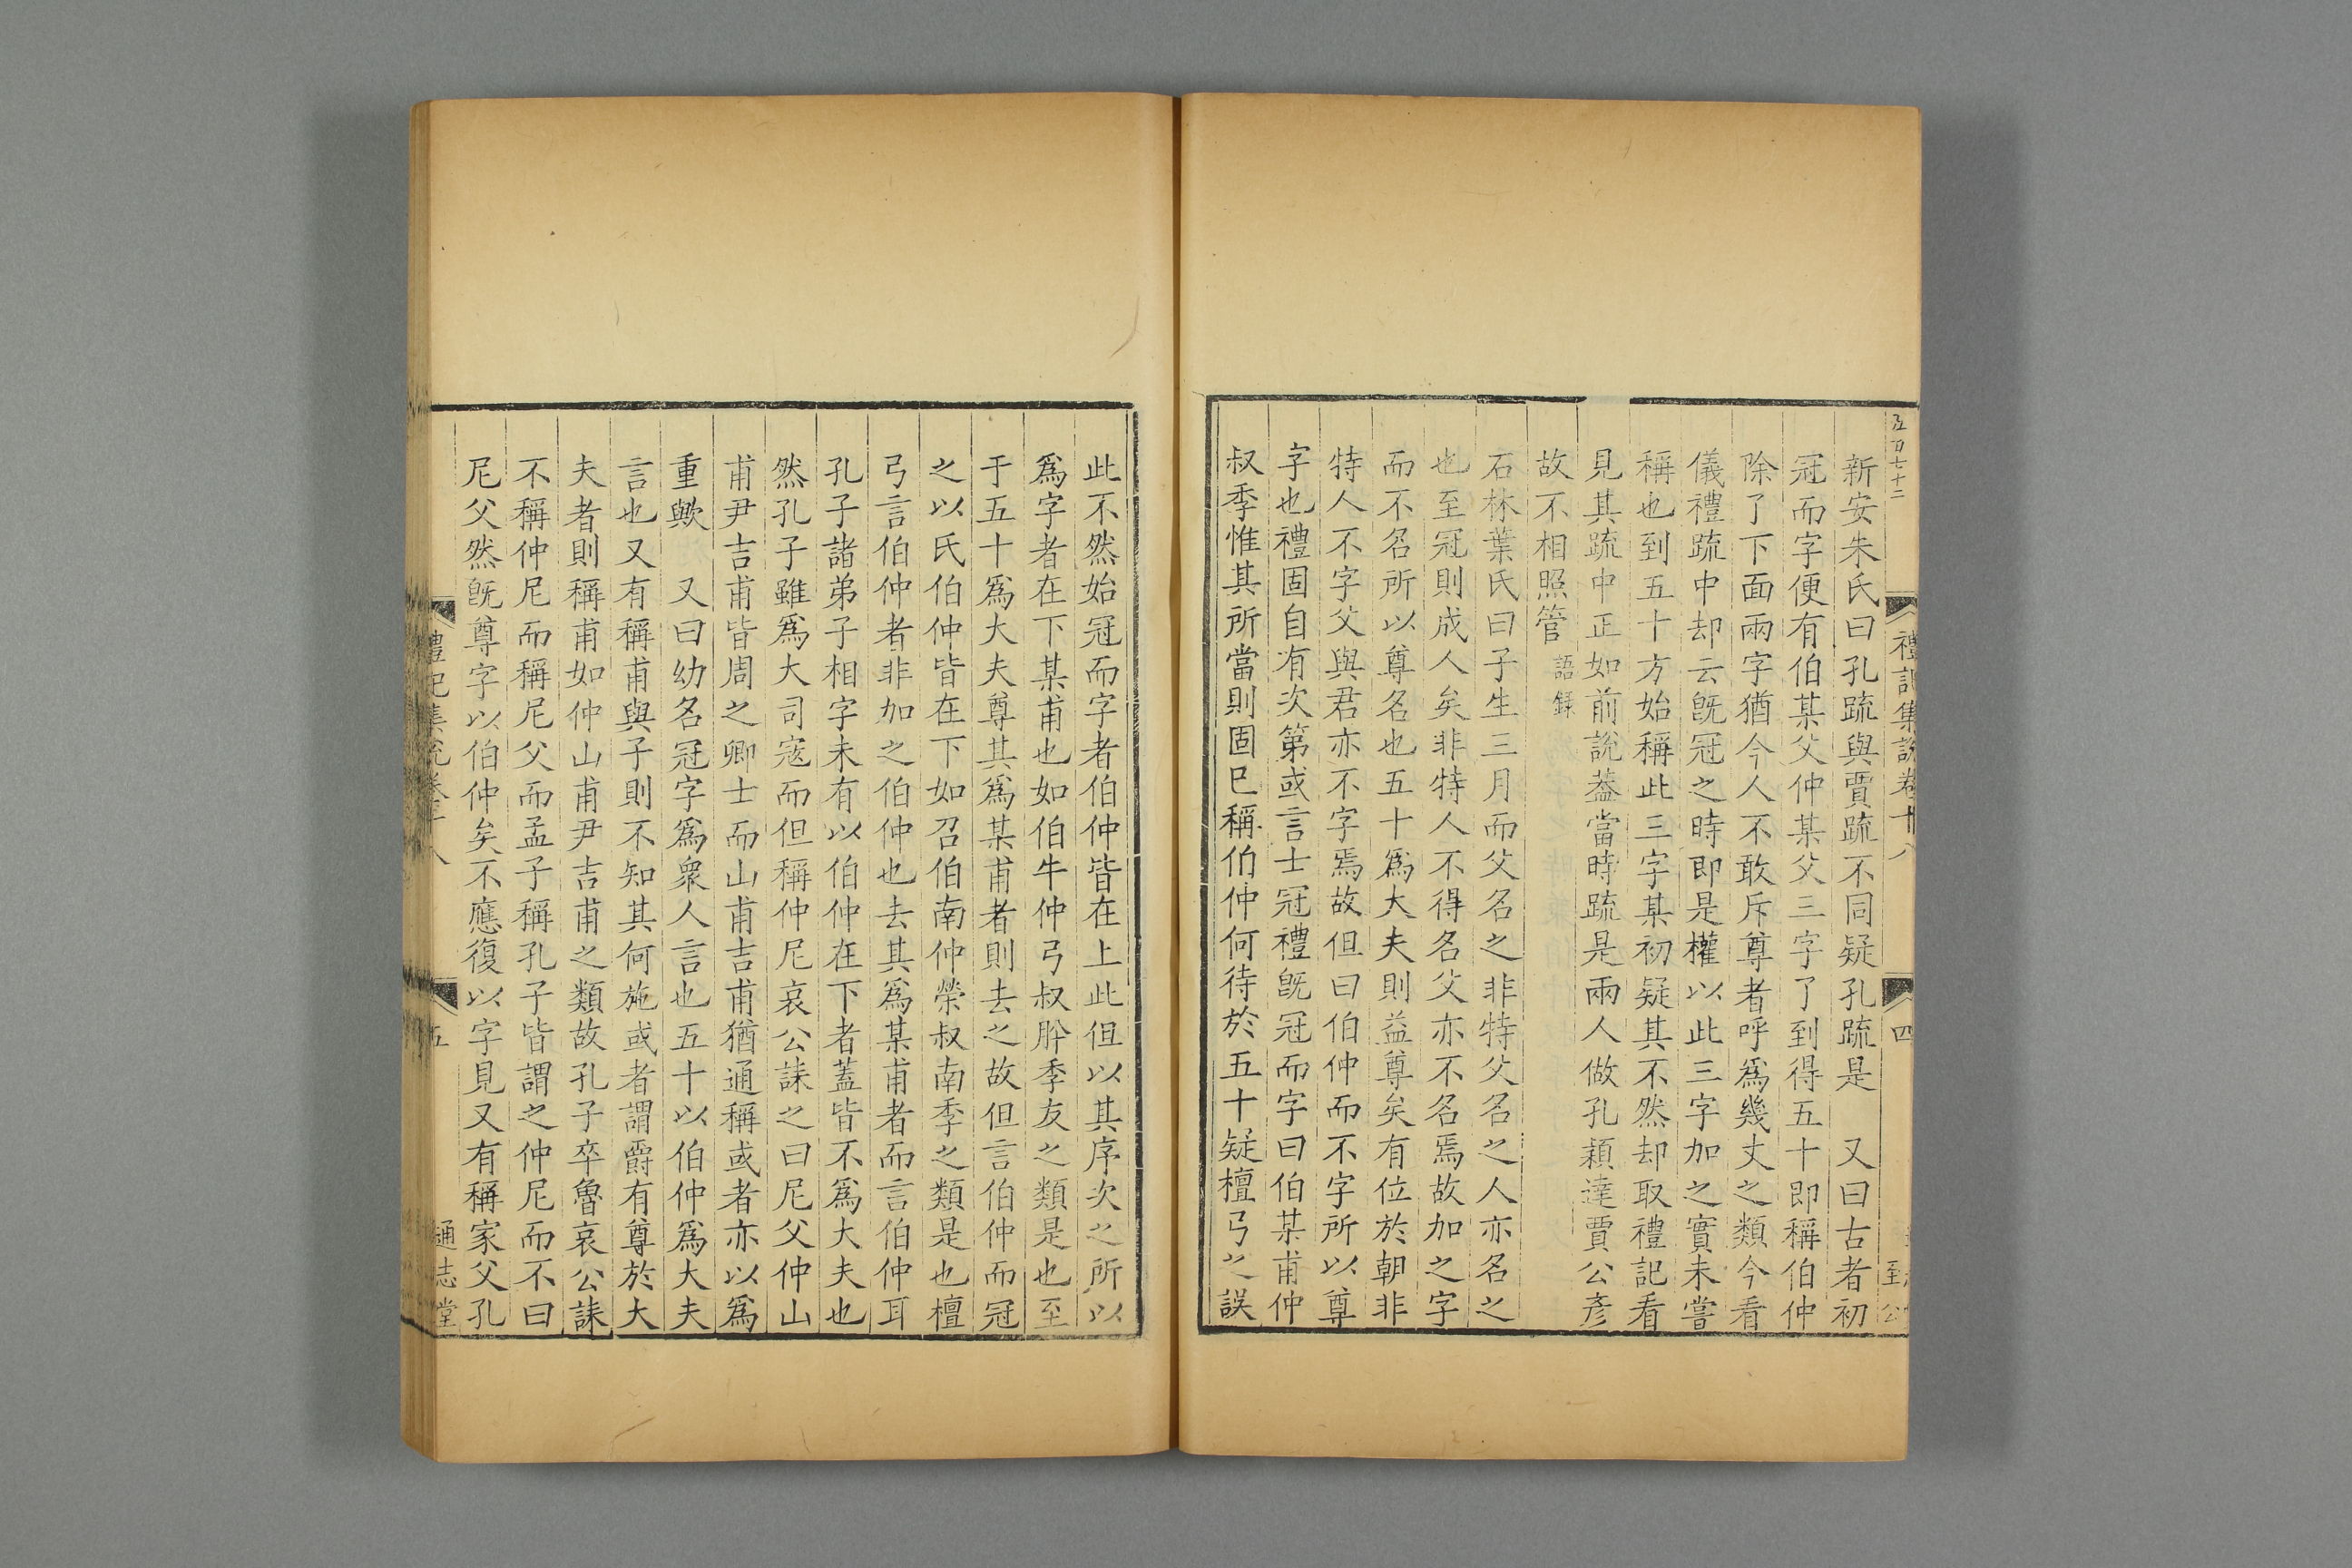 五百七十二
禮記集說卷十八
四
至公
新安朱氏曰孔疏與賈疏不同疑孔疏是　又曰古者初
冠而字便有伯某父仲某父三字了到得五十即稱伯仲
除了下面兩字猶今人不敢斥尊者呼爲幾丈之類今看
儀禮疏中却云旣冠之時即是權以此三字加之實未嘗
稱也到五十方始稱此三字某初疑其不然却取禮記看
見其疏中正如前說葢當時疏是兩人做孔穎達賈公彥
故不相照管語錄
石林葉氏曰子生三月而父名之非特父名之人亦名之
也至冠則成人矣非特人不得名父亦不名焉故加之字
而不名所以尊名也五十爲大夫則益尊矣有位於朝非
特人不字父與君亦不字焉故但曰伯仲而不字所以尊
字也禮固自有次第或言士冠禮旣冠而字曰伯某甫仲
叔季惟其所當則固已稱伯仲何待於五十疑檀弓之誤
此不然始冠而字者伯仲皆在上此但以其序次之所以
爲字者在下某甫也如伯牛仲弓叔肸季友之類是也至
于五十爲大夫尊其爲某甫者則去之故但言伯仲而冠
之以氏伯仲皆在下如召伯南仲榮叔南季之類是也檀
弓言伯仲者非加之伯仲也去其爲某甫者而言伯仲耳
孔子諸弟子相字未有以伯仲在下者蓋皆不爲大夫也
然孔子雖爲大司寇而但稱仲尼哀公誄之曰尼父仲山
甫尹吉甫皆周之卿士而山甫吉甫猶通稱或者亦以爲
重歟　又曰幼名冠字爲衆人言也五十以伯仲爲大夫
言也又有稱甫與子則不知其何施或者謂爵有尊於大
夫者則稱甫如仲山甫尹吉甫之類故孔子卒魯哀公誄
不稱仲尼而稱尼父而孟子稱孔子皆謂之仲尼而不曰
尼父然旣尊字以伯仲矣不應復以字見又有稱家父孔
禮記集說卷十八
五
通志堂